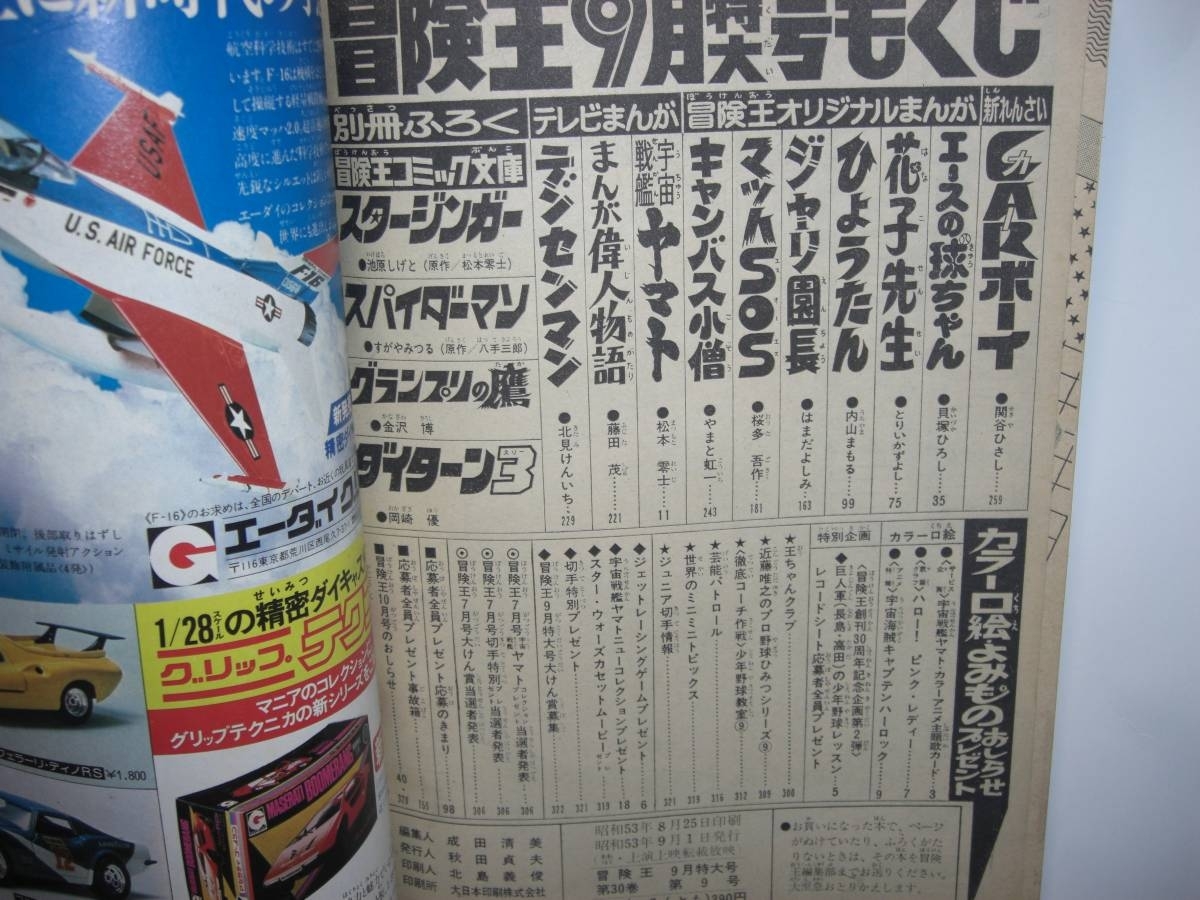 冒険王9月特大号もくじ
新れんさい
CARボーイ
●関谷ひさし……259
冒険王オリジナルまんが
エースの球ちゃん
●貝塚ひろし……35
花子先生
●とりいかずよし……75
ひょうたん
●内山まもる……99
ジャリ園長
●はまだよしみ……163
マッハSOS
●桜多吾作……181
キャンバス小僧
●やまと虹一……243
テレビまんが
宇宙戦艦ヤマト
●松本零士……11
まんが偉人物語
●藤田茂……221
デンセンマン
●北見けんいち……229
別冊ふろく
冒険王コミック文庫
スタージンガー
●池原しげと(原作/松本零士)
スパイダーマン
●すがやみつる(原作/八手三郎)
グランプリの鷹
●金沢 博
ダイターン3
●岡崎 優
カラー口絵よみものおしらせプレゼント
カラー口絵
宇宙戦艦ヤマト・カラーアニメ主題歌カード・3
ハロー!ピンク・レディー・7
◆〈アニメ〉宇宙海賊キャプテンハーロック・9
特別企画
〈冒険王創刊30周年記念企画第2弾〉
◆巨人軍〈長島・高田の少年野球レッスン・5
レコードシート応募者全員プレゼント
★王ちゃんクラブ 300
★近藤唯之のプロ野球ひみつシリーズ⑨ 309
★〈徹底コーチ作戦〉少年野球教室⑨ 312
★芸能パトロール 316
★世界のミニミニトピックス 319
★ジュニア切手情報 321
◆ジェットレーシングゲームプレゼント 6
◆宇宙戦艦ヤマトニューコレクションプレゼント 18
◆スター・ウォーズカセットムービープレゼント 319
◆切手特別プレゼント 321
◆冒険王9月特大号大けん賞募集 322
◎冒険王7月号宇宙戦艦ヤマトコレクションプレゼント当選者発表 306
◎冒険王7月号切手特別プレゼント当選者発表 306
◎冒険王7月号大けん賞当選者発表 306
■応募者全員プレゼント応募のきまり 98
■応募者全員プレゼント事故箱 155
■冒険王10月号のおしらせ 40・320
編集人 成田清美
発行人 秋田貞夫
印刷人 北島義俊
印刷所 大日本印刷株式会社
昭和53年8月25日印刷
昭和53年9月1日発行
(禁・上演上映転載放映)
冒険王 9月特大号
第30巻 第9号
390円
●お買いになった本で、ページ
がぬけていたり、ふろくがた
りないときは、その本を冒険
王編集部までお送りください。
大至急おとりかえします。
航空科学技術は
います。F-16は
して操縦する軽量
速度マッハ2.0、
高度に進んだ科学
先鋭なシルエットは
エーダイのコレクション
USAF
U.S. AIR FORCE
F16
《F-16》のお求めは、全国のデパート、お近くの
エーダイグ
〒116東京都荒川区西尾久7-
後部取りはずし
ミサイル発射アクション
装飾附属品〈4発〉
1/28の精密ダイキャス
スケール
グリップテク
マニアのコレクションに
グリップテクニカの新シリーズを
フェラーリ・ディノRS ¥1,800
MASERATI BOOMERANG